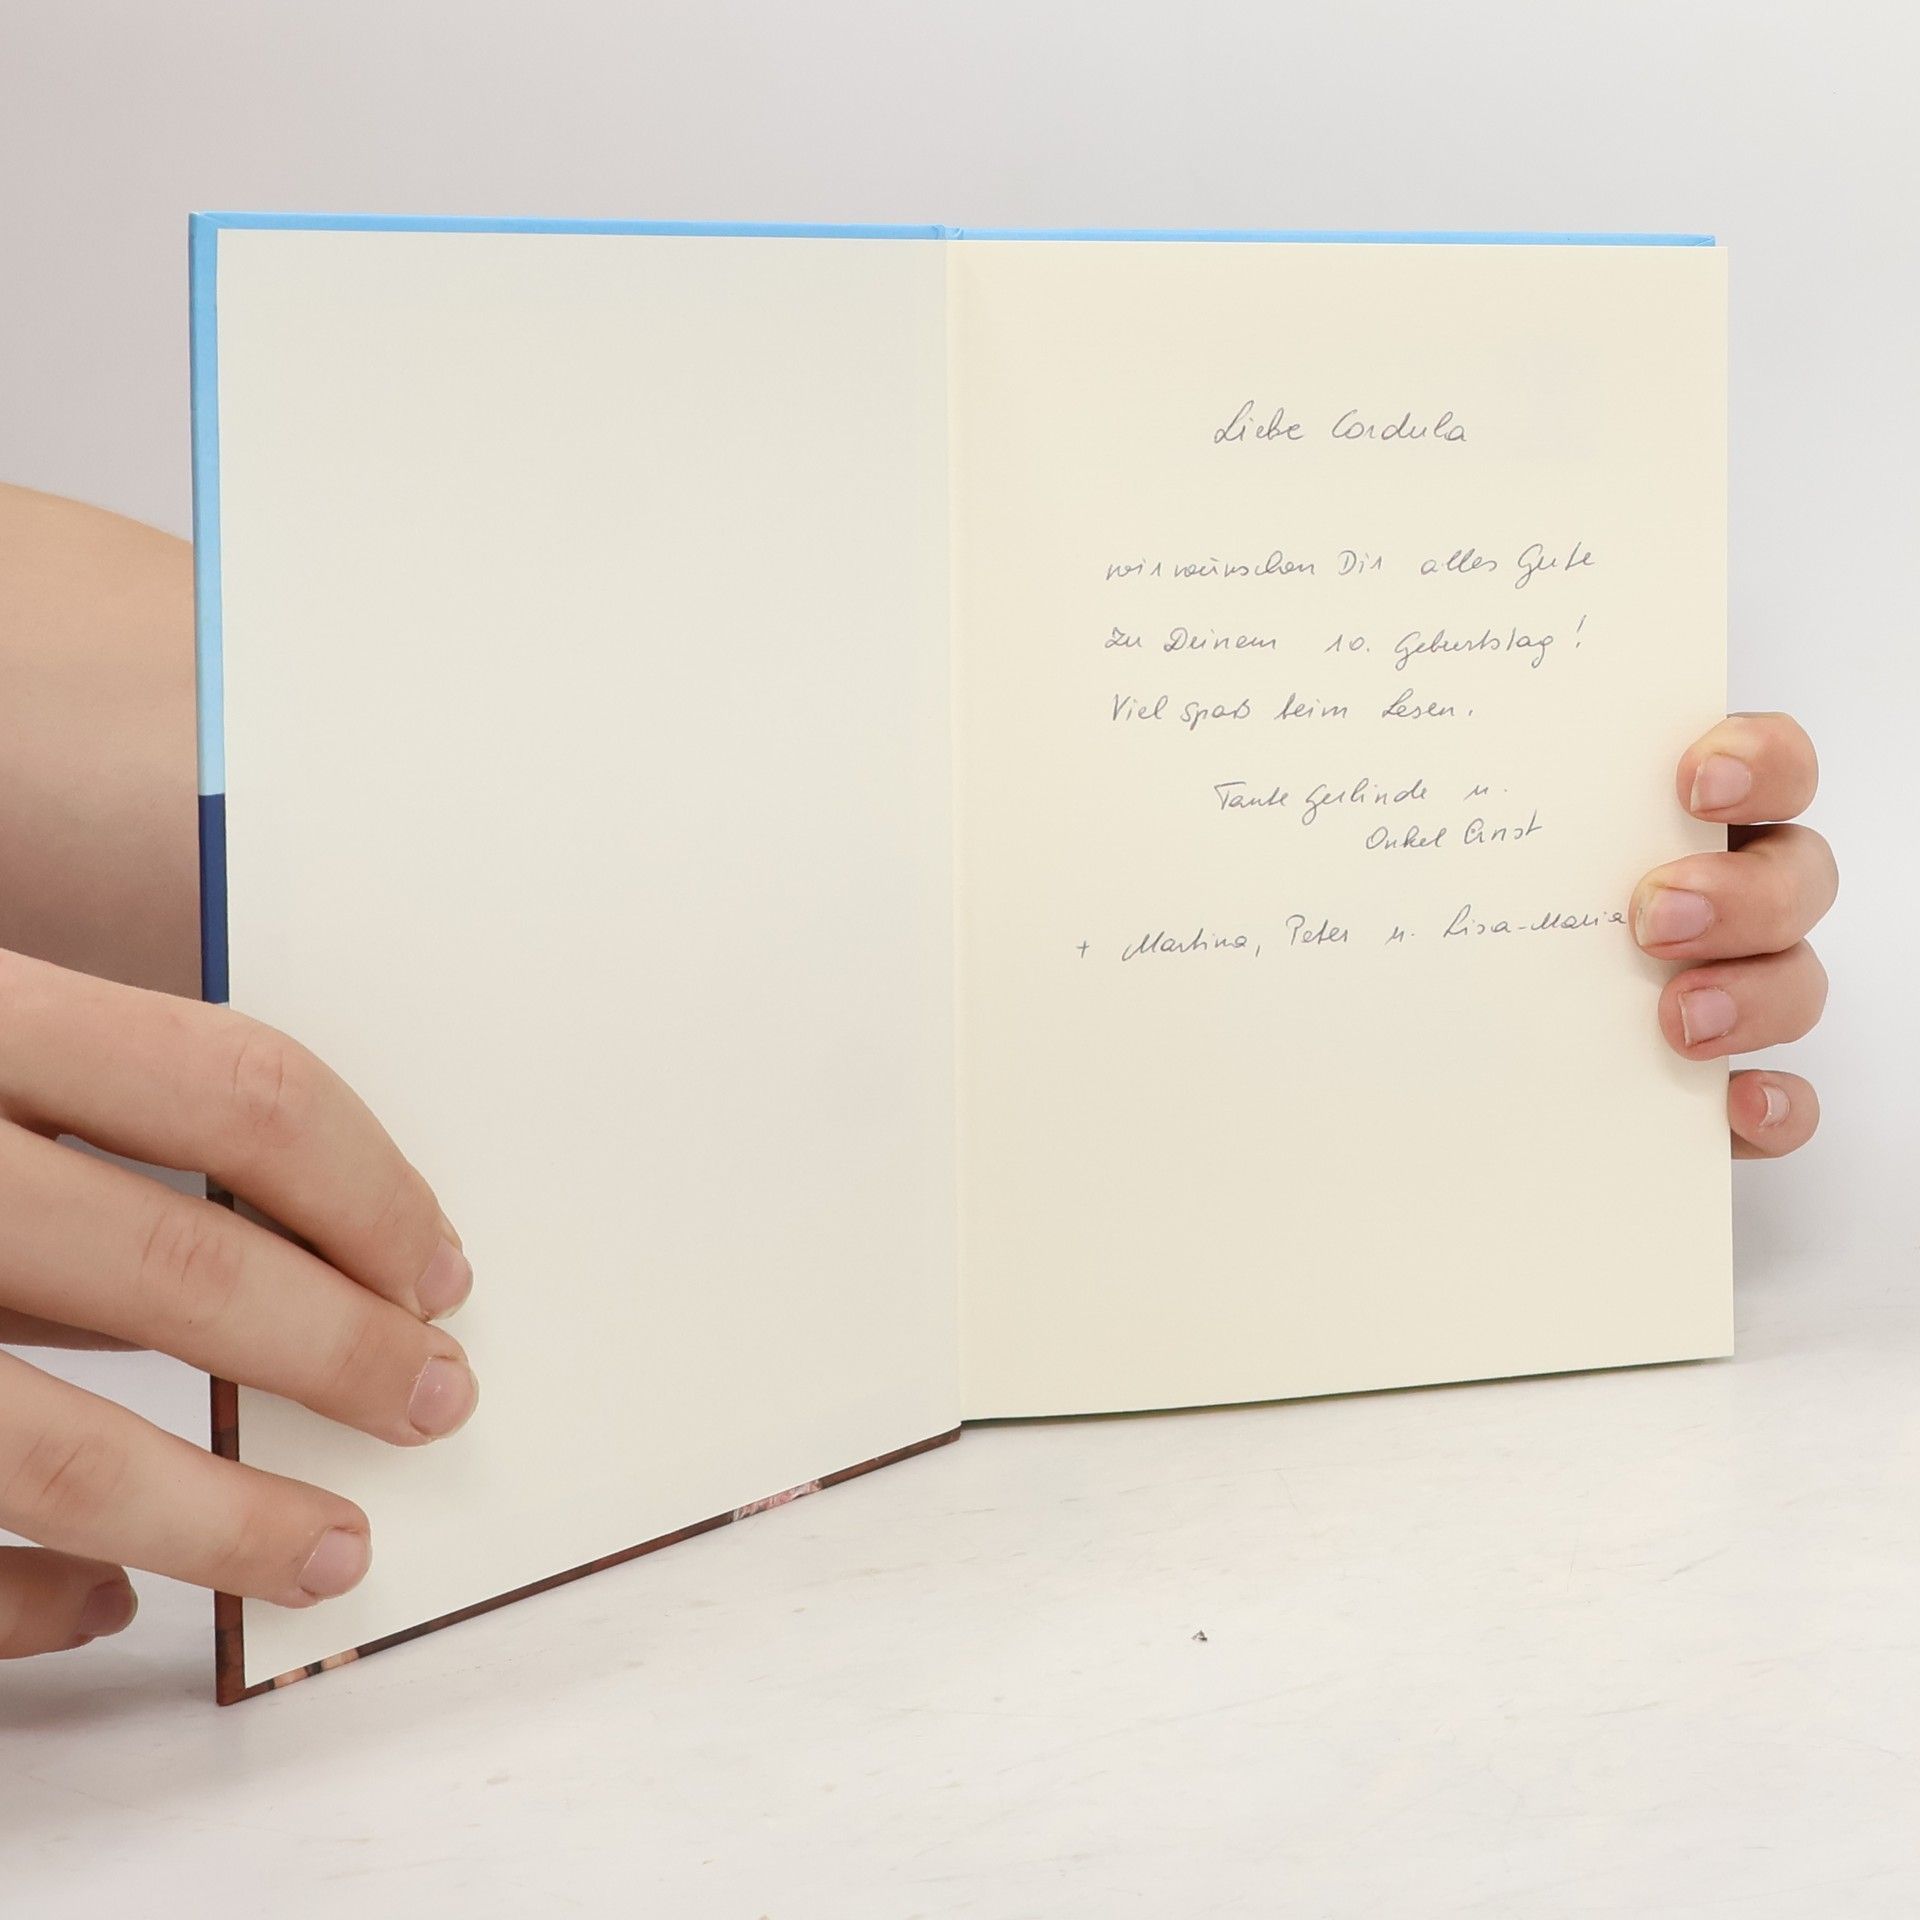 Liebe Cordula
wir wünschen Dir alles Gute
zu Deinem 10. Geburtstag!
Viel Spaß beim Lesen.
Tante Gerlinde u.
Onkel Ernst
+ Martina, Peter u. Lisa-Maria